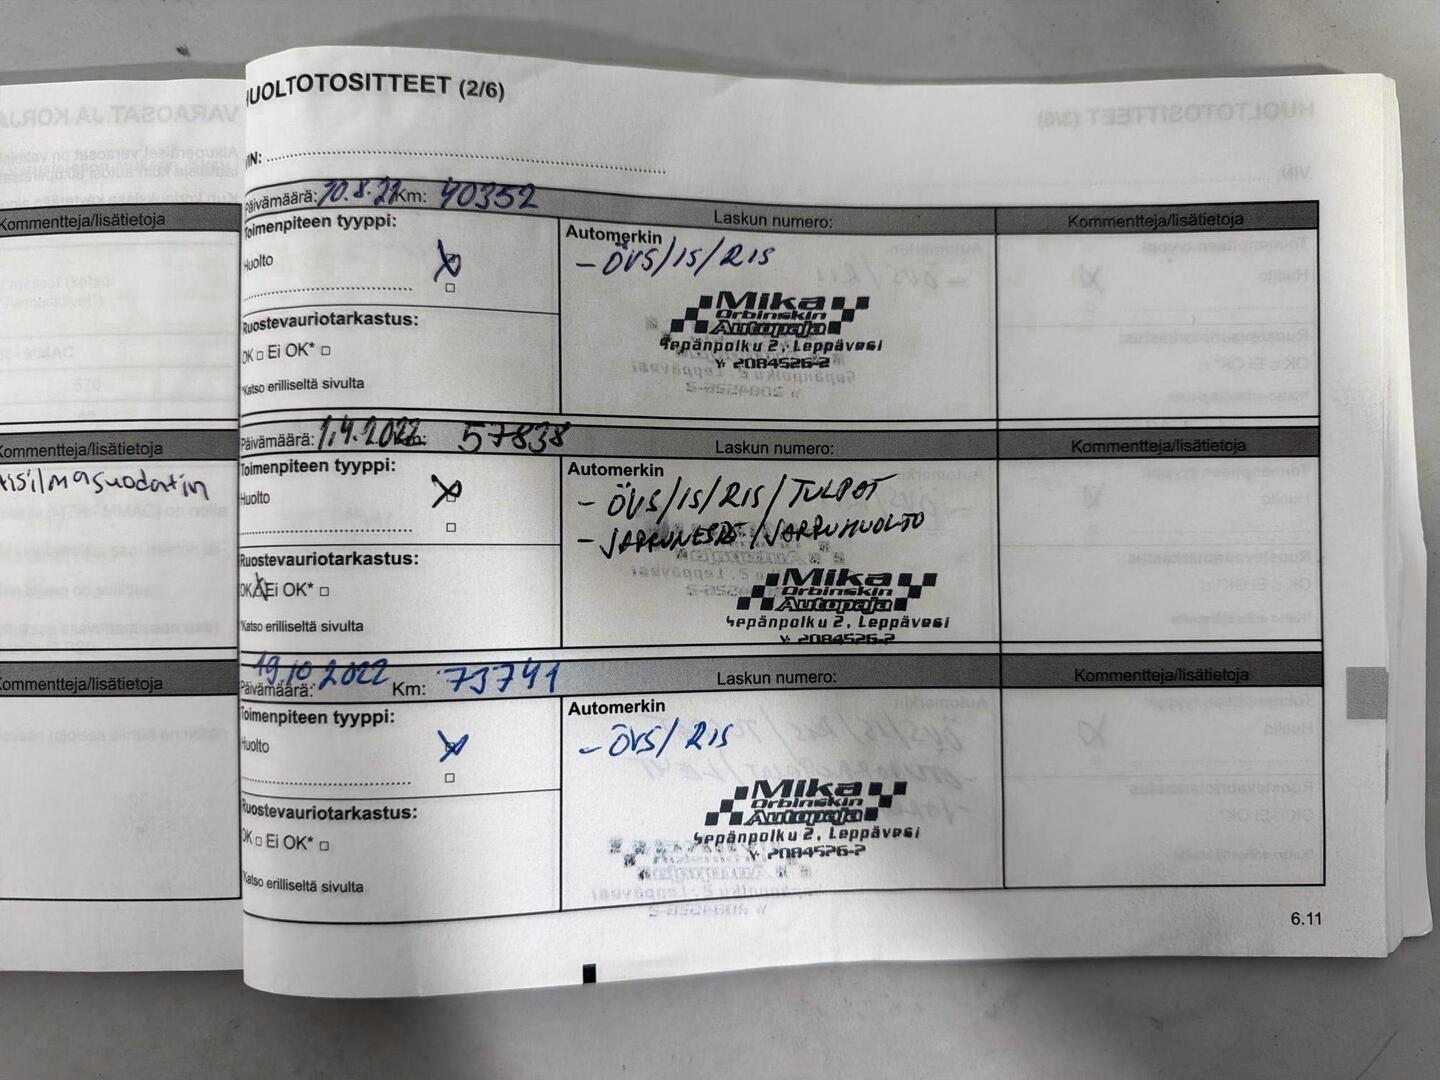 HUOLTOTOSITTEET (2/6)
VIN:
Päivämäärä: 30.8.21 Km: 40352
Laskun numero:
Kommentteja/lisätietoja
Toimenpiteen tyyppi:
Huolto
Ruostevauriotarkastus:
OK □ Ei OK* □
*Katso erilliseltä sivulta
Automerkin
- ÖVS/IS/RIS
Mika
Orbinskin
Autopaja
Sepänpolku 2, Leppävesi
Y: 2084526-2
Päivämäärä: 1.4.2022 Km: 57838
Laskun numero:
Kommentteja/lisätietoja
Toimenpiteen tyyppi:
Huolto
Ruostevauriotarkastus:
OK □ Ei OK* □
*Katso erilliseltä sivulta
Automerkin
- ÖVS/IS/RIS/TULPAT
- JARRUNESTE/JARRUHUOLTO
Mika
Orbinskin
Autopaja
Sepänpolku 2, Leppävesi
Y: 2084526-2
Päivämäärä: 19.10.2022 Km: 73741
Laskun numero:
Kommentteja/lisätietoja
Toimenpiteen tyyppi:
Huolto
Ruostevauriotarkastus:
OK □ Ei OK* □
*Katso erilliseltä sivulta
Automerkin
- ÖVS/RIS
Mika
Orbinskin
Autopaja
Sepänpolku 2, Leppävesi
Y: 2084526-2
6.11
Kommentteja/lisätietoja
Kommentteja/lisätietoja
Kommentteja/lisätietoja